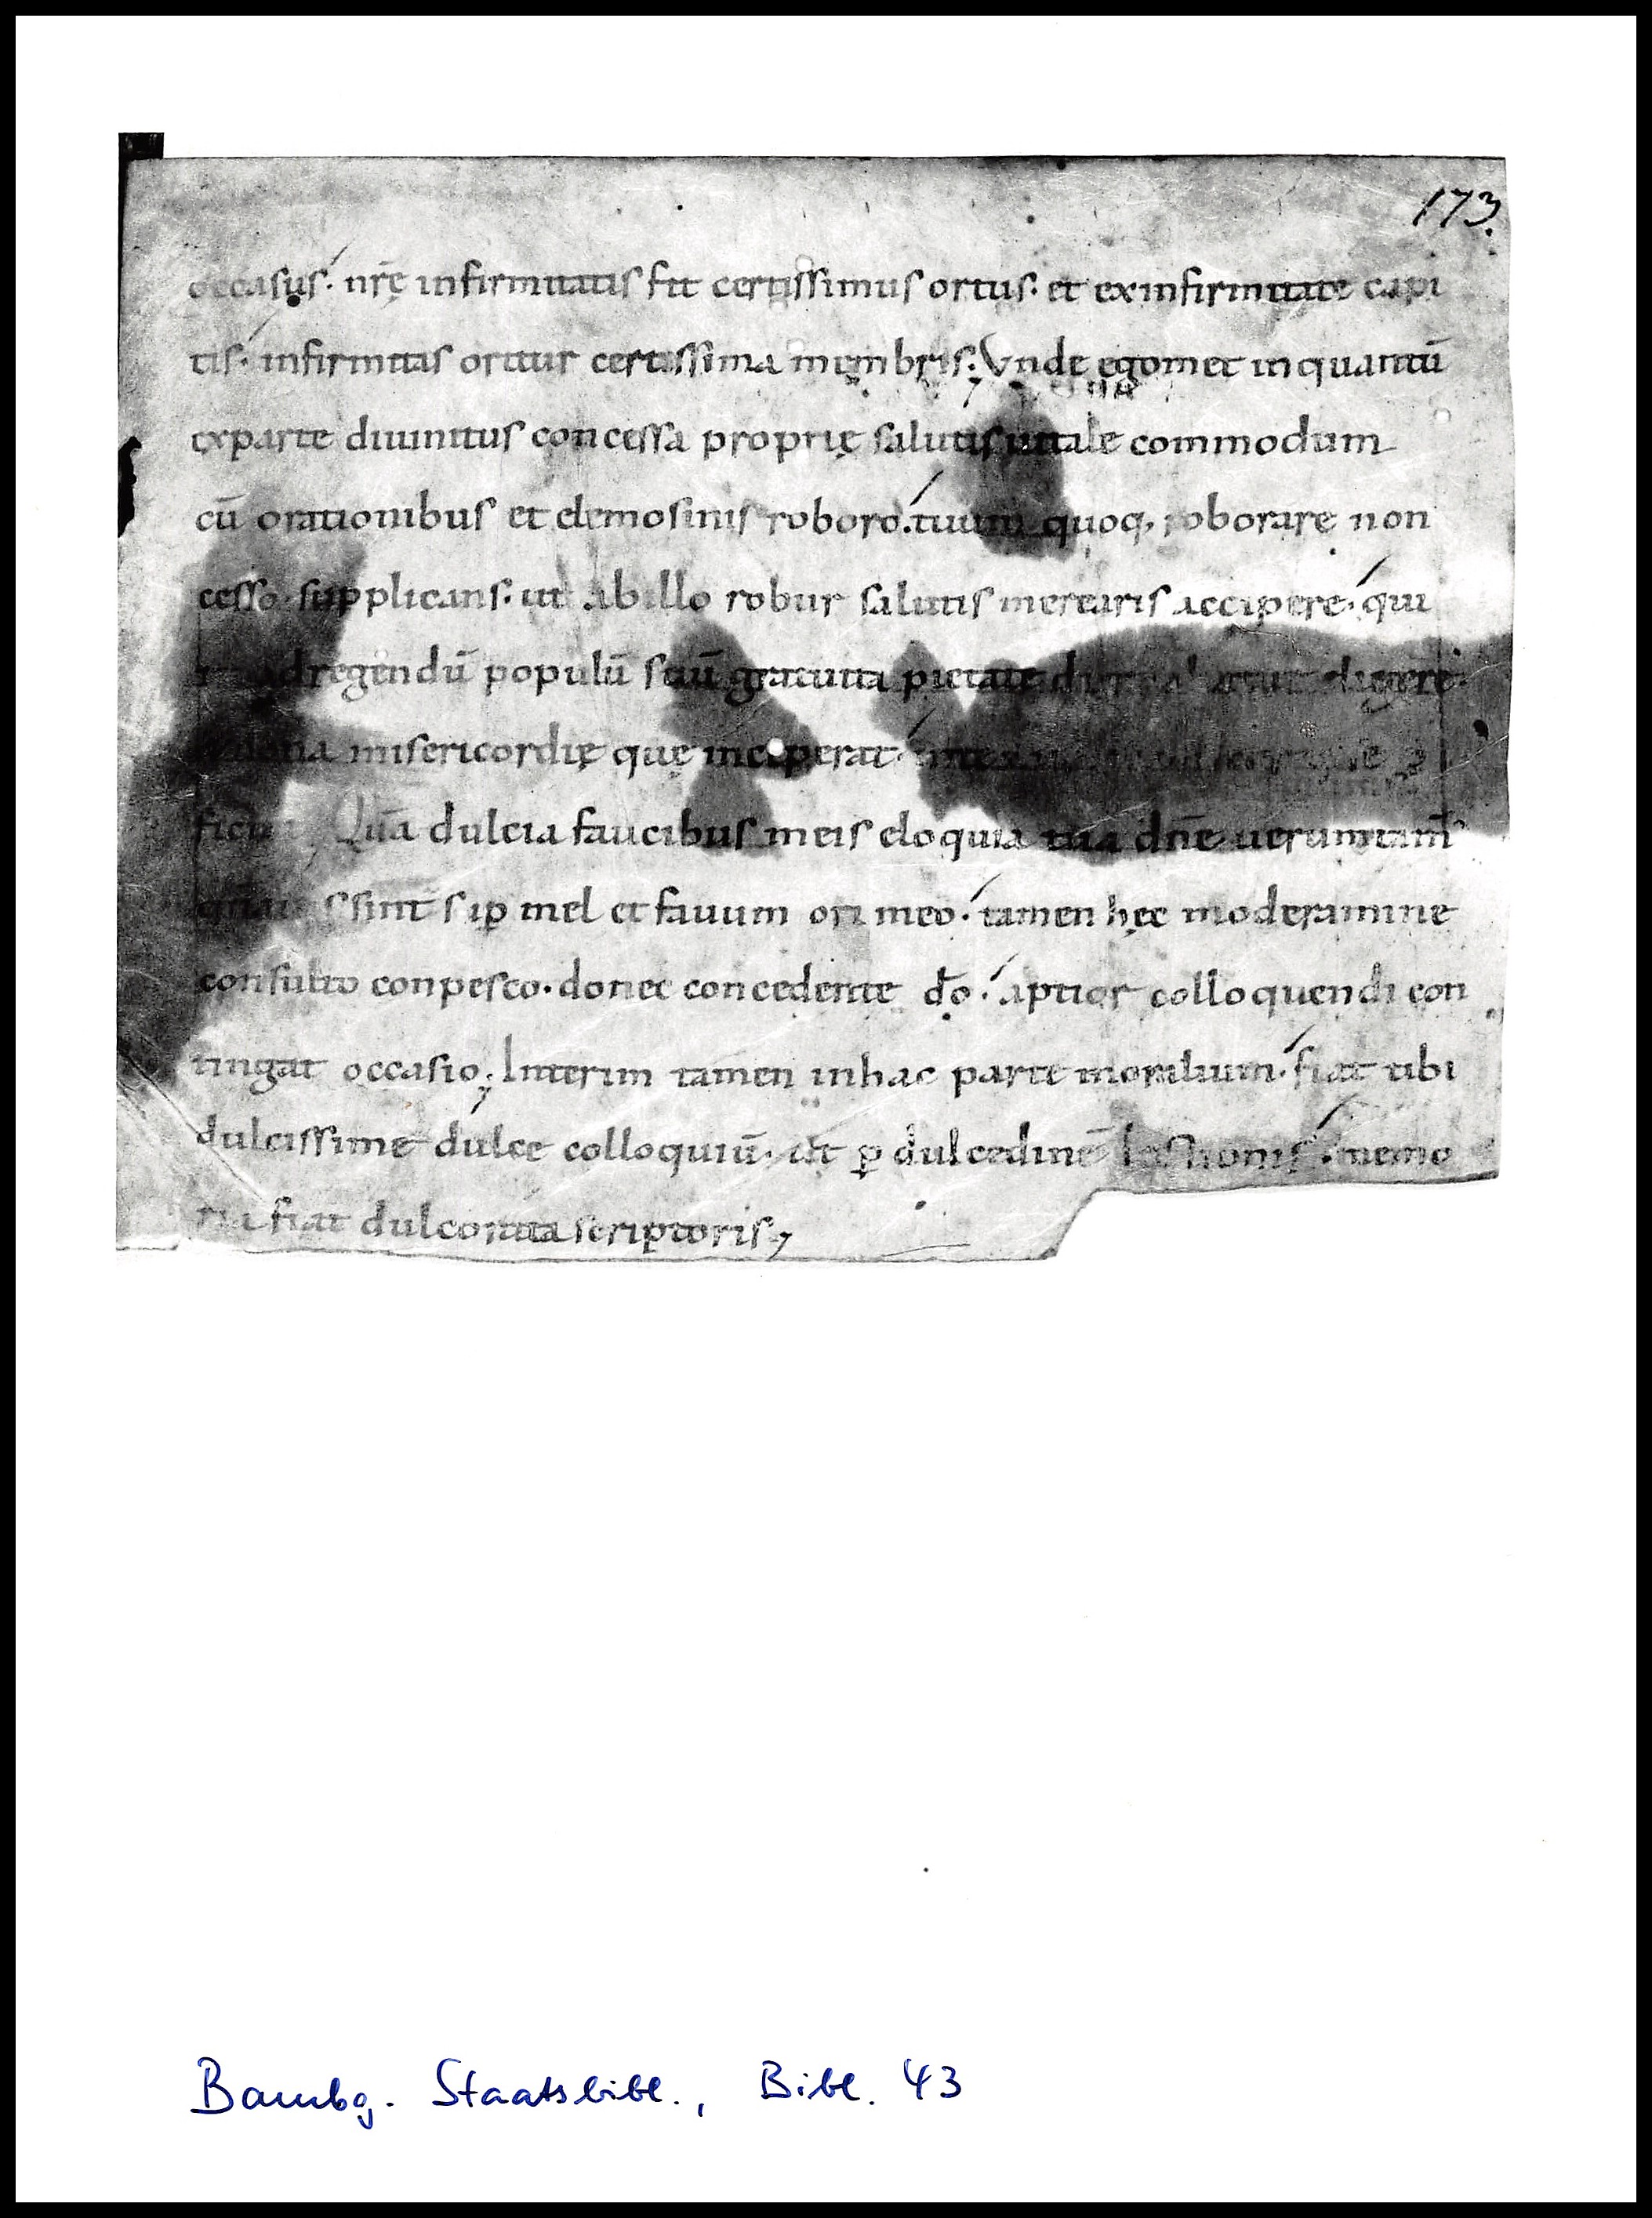 173.
occasus. nrę̄ infirmitatis fit certissimus ortus. et ex infirmitate capi
tis. infirmitas oritur certissima membris. Vnde egomet in quantū
ex parte diuinitus concessa proprię salutis uitale commodum
cū orationibus et elemosinis roboro. tuum quoq, roborare non
cesso supplicans. ut ab illo robur salutis merearis accipere. qui
ad regendū populū suū gratuita pietate
misericordię quę inceperat.
Quā dulcia faucibus meis eloquia tua dn̄e uerumtam̄
sint sup mel et fauum ori meo. tamen hęc moderamine
consulto conpesco. donec concedente dō. aptior colloquendi con
tingat occasio; Interim tamen in hac parte moralium. fiat tibi
dulcissime dulce colloquiū. ut p dulcedinē lectionis. memo
ria fiat dulcorata scriptoris;
Bambg. Staatsbibl., Bibl. 43